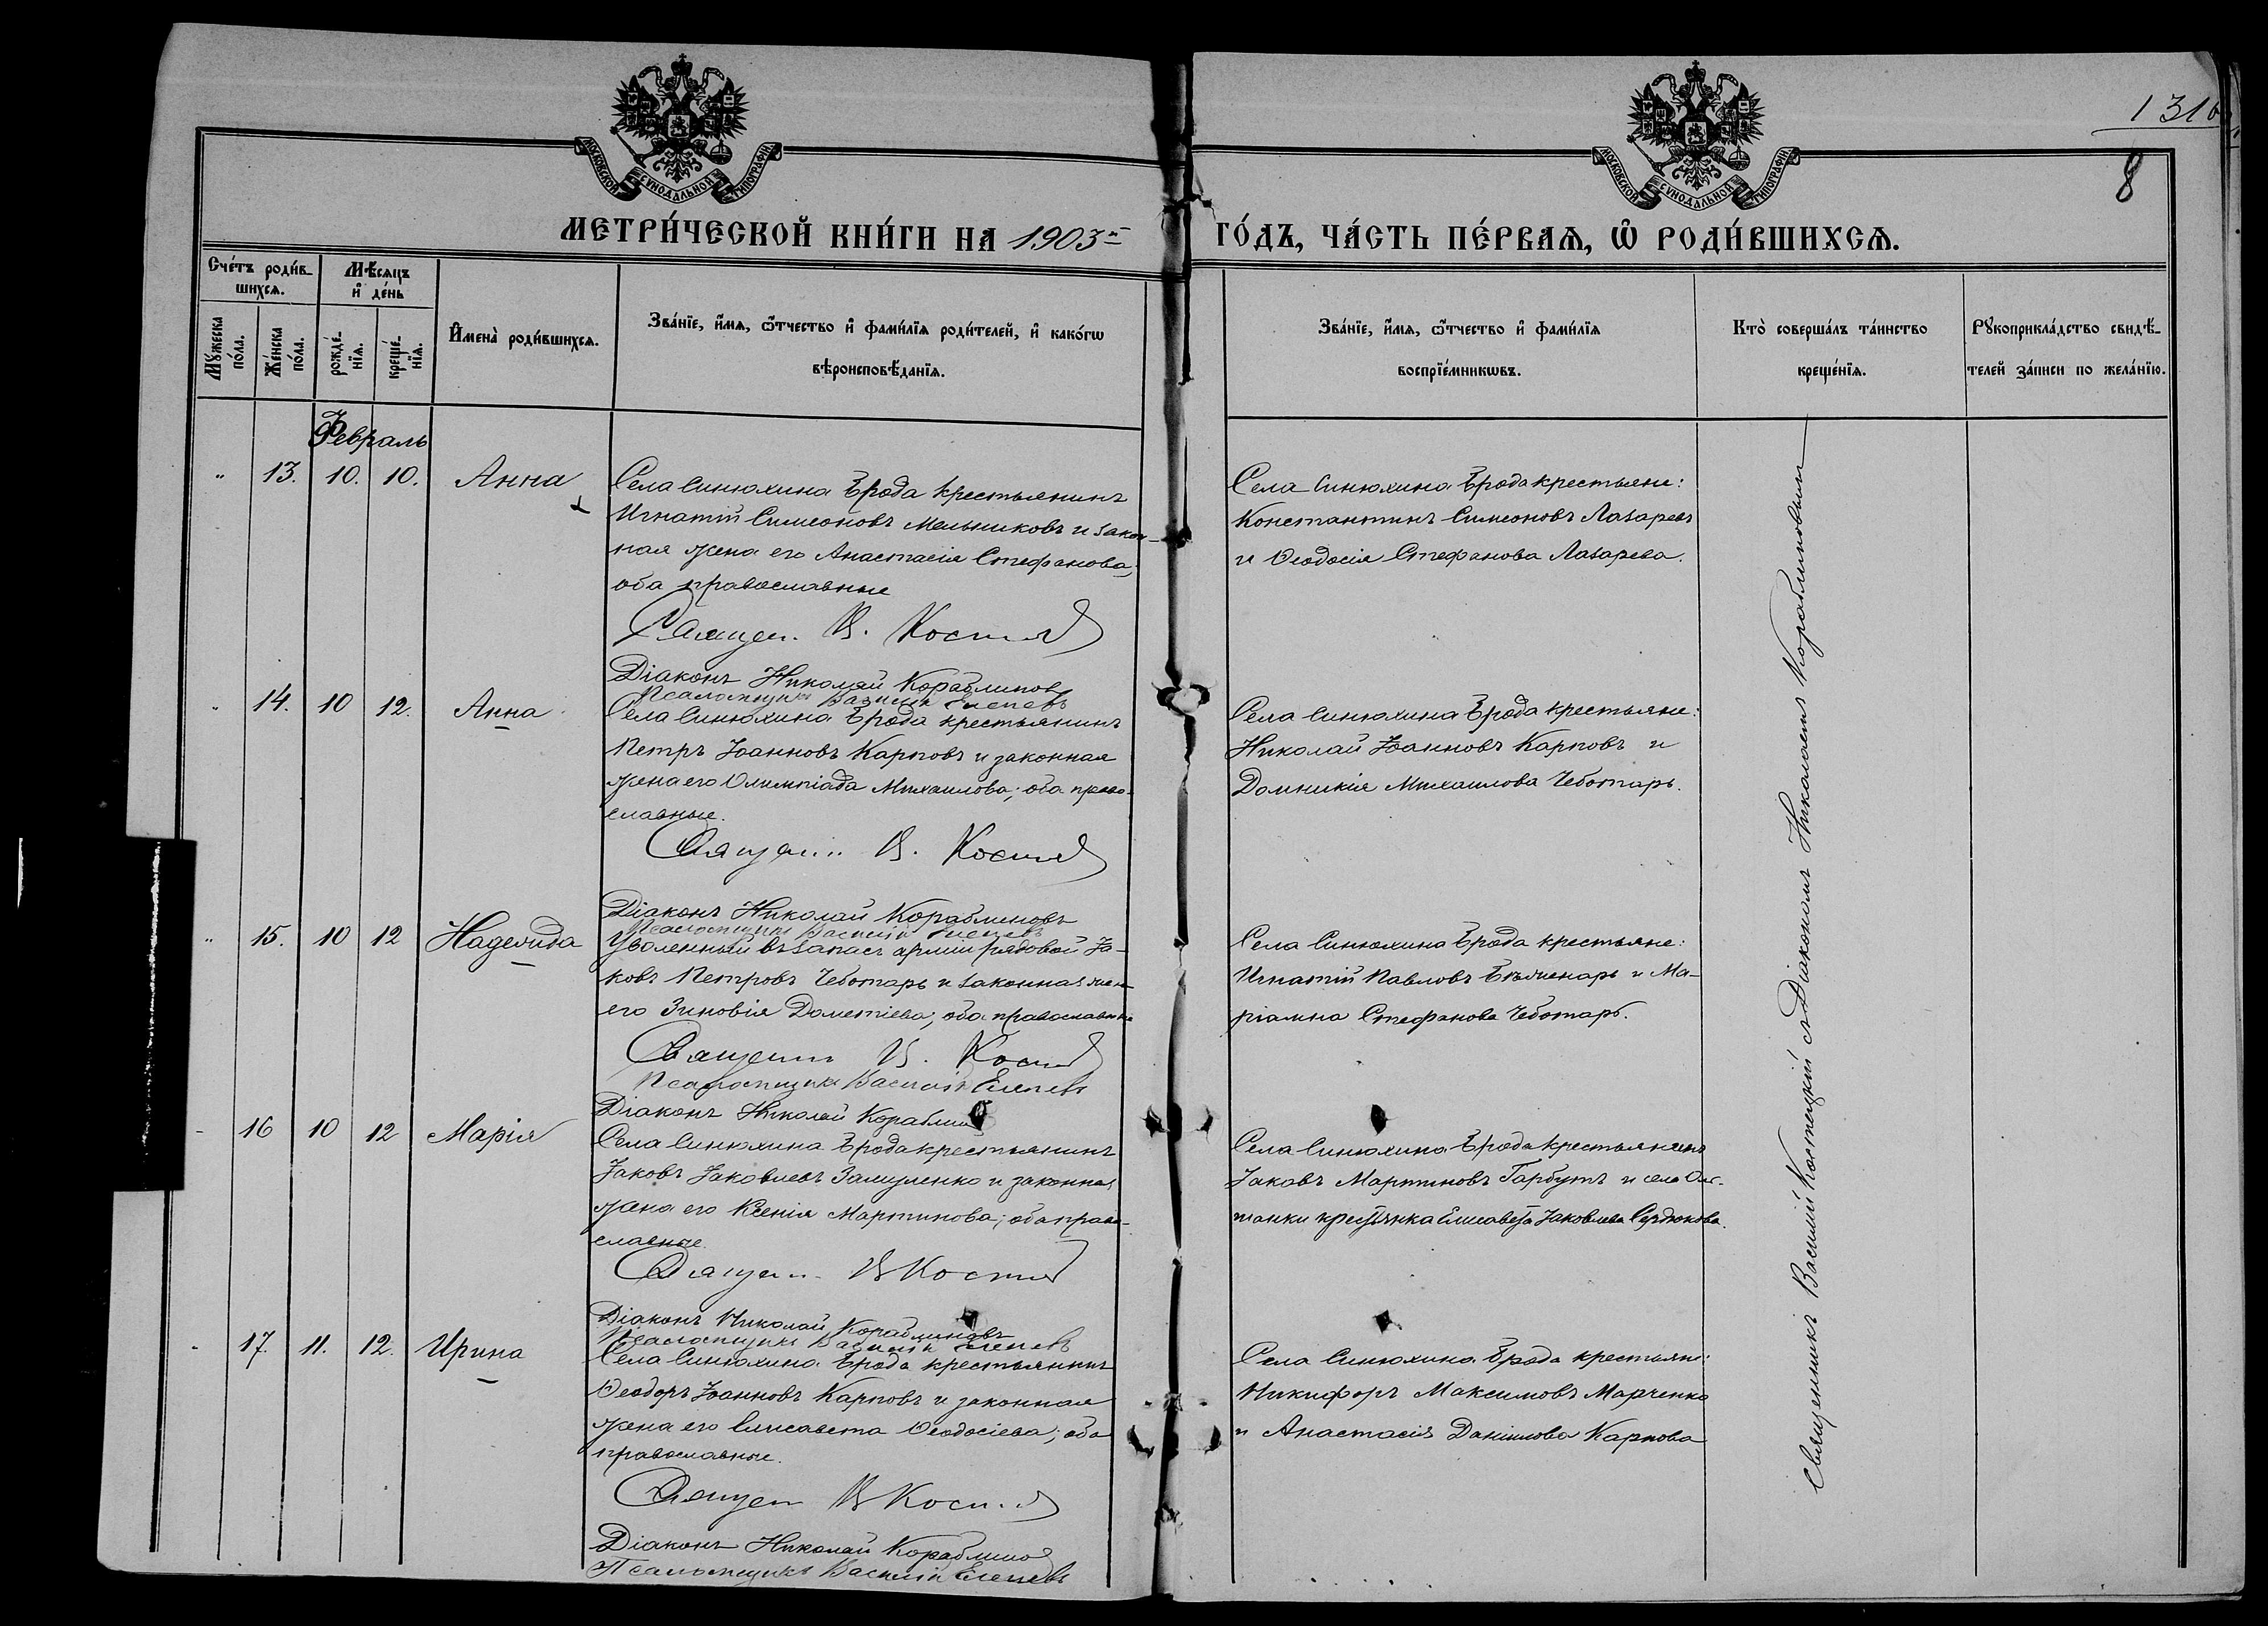 1316
8
МОСКОВСКОЙ СѴНОДАЛЬНОЙ ТИПОГРАФІИ
МОСКОВСКОЙ СѴНОДАЛЬНОЙ ТИПОГРАФІИ
МЕТРИ́ЧЕСКОЙ КНИ́ГИ НА 1903й ГО́ДЪ, ЧА́СТЬ ПЕ́РВАѦ, Ѡ҆ РОДИ́ВШИХСѦ.
Сче́тъ роди́в-
шихсѧ.
Мѣ́сяцъ
и҆ де́нь
Мꙋ́жеска
по́ла.
Же́нска
по́ла.
рожде́-
нїѧ.
креще́-
нїѧ.
И҆мена̀ роди́вшихсѧ.
Зва́нїе, и҆́мѧ, ѻ҆́тчество и҆ фами́лїѧ роди́телей, и҆ како́гѡ
вѣроисповѣ́данїѧ.
Зва́нїе, и҆́мѧ, ѻ҆́тчество и҆ фами́лїѧ
воспрїе́мникѡвъ.
Кто̀ соверша́лъ та́инство
креще́нїѧ.
Рꙋкоприкла́дство свидѣ́-
телей за́писи по жела́нїю.
Февраль
" 13. 10. 10. Анна
Села Синюхина Брода крестьянинъ
Игнатій Симеоновъ Мельниковъ и закон-
ная жена его Анастасія Стефанова;
оба православные
Священ. В. Кост
Діаконъ Николай Кораблиновъ
Псаломщикъ Василій Елепевъ
Села Синюхина Брода крестьяне:
Константинъ Симеоновъ Лазаревъ
и Ѳеодосія Стефанова Лазарева.
14. 10 12. Анна
Села Синюхина Брода крестьянинъ
Петръ Іоанновъ Карповъ и законная
жена его Олимпіада Михаилова; оба право-
славные.
Священ. В. Кост
Діаконъ Николай Кораблиновъ
Псаломщикъ Василій Елепевъ
Села Синюхина Брода крестьяне:
Николай Іоанновъ Карповъ и
Домникія Михаилова Чеботарь.
" 15. 10 12 Надежда
Уволенный въ запасъ арміи рядовой Іа-
ковъ Петровъ Чеботарь и законная жена
его Зиновія Дометіева; оба православные
Священ. В. Кост
Псаломщикъ Василій Елепевъ
Діаконъ Николай Кораблин
Села Синюхина Брода крестьяне:
Игнатій Павловъ и Ма-
ріамна Стефанова Чеботарь.
16 10 12 Марія
Села Синюхина Брода крестьянинъ
Іаковъ Іаковлевъ Замуленко и законная
жена его Ксенія Мартинова; оба право-
славные.
Священ. В Кост
Діаконъ Николай Кораблиновъ
Псаломщикъ Василій Елепевъ
Села Синюхина Брода крестьянинъ
Іаковъ Мартиновъ Гарбузъ и села Оль-
шанки крестьянка Елисавета Іаковлева Сердюкова.
17. 11. 12. Ирина
Села Синюхина Брода крестьянинъ
Ѳеодоръ Іоанновъ Карповъ и законная
жена его Елисавета Ѳеодосіева; оба
православные.
Священ В Кост
Діаконъ Николай Кораблинов
Псаломщикъ Василій Елепевъ
Села Синюхина Брода крестьяне:
Никифоръ Максимовъ Марченко
и Анастасія Даніилова Карпова
Священникъ Василій Костецкій съ Діакономъ Николаемъ Кораблиновымъ